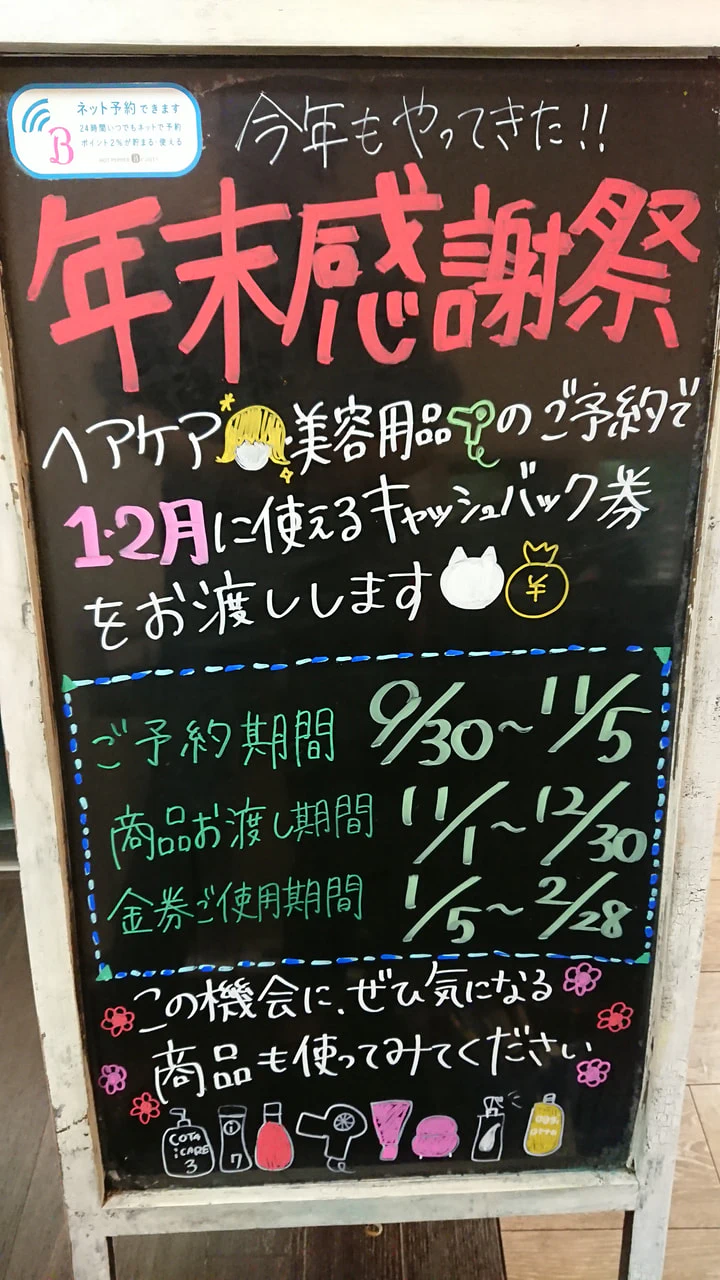 ネット予約できます
24時間いつでもネットで予約
ポイント2%が貯まる・使える
B
今年もやってきた!!
年末感謝祭
ヘアケア・美容用品のご予約で
1・2月に使えるキャッシュバック券
をお渡しします
¥
ご予約期間 9/30～11/5
商品お渡し期間 11/1～12/30
金券ご使用期間 1/5～2/28
この機会に、ぜひ気になる
商品も使ってみてください
COTA
iCARE
3
i
7